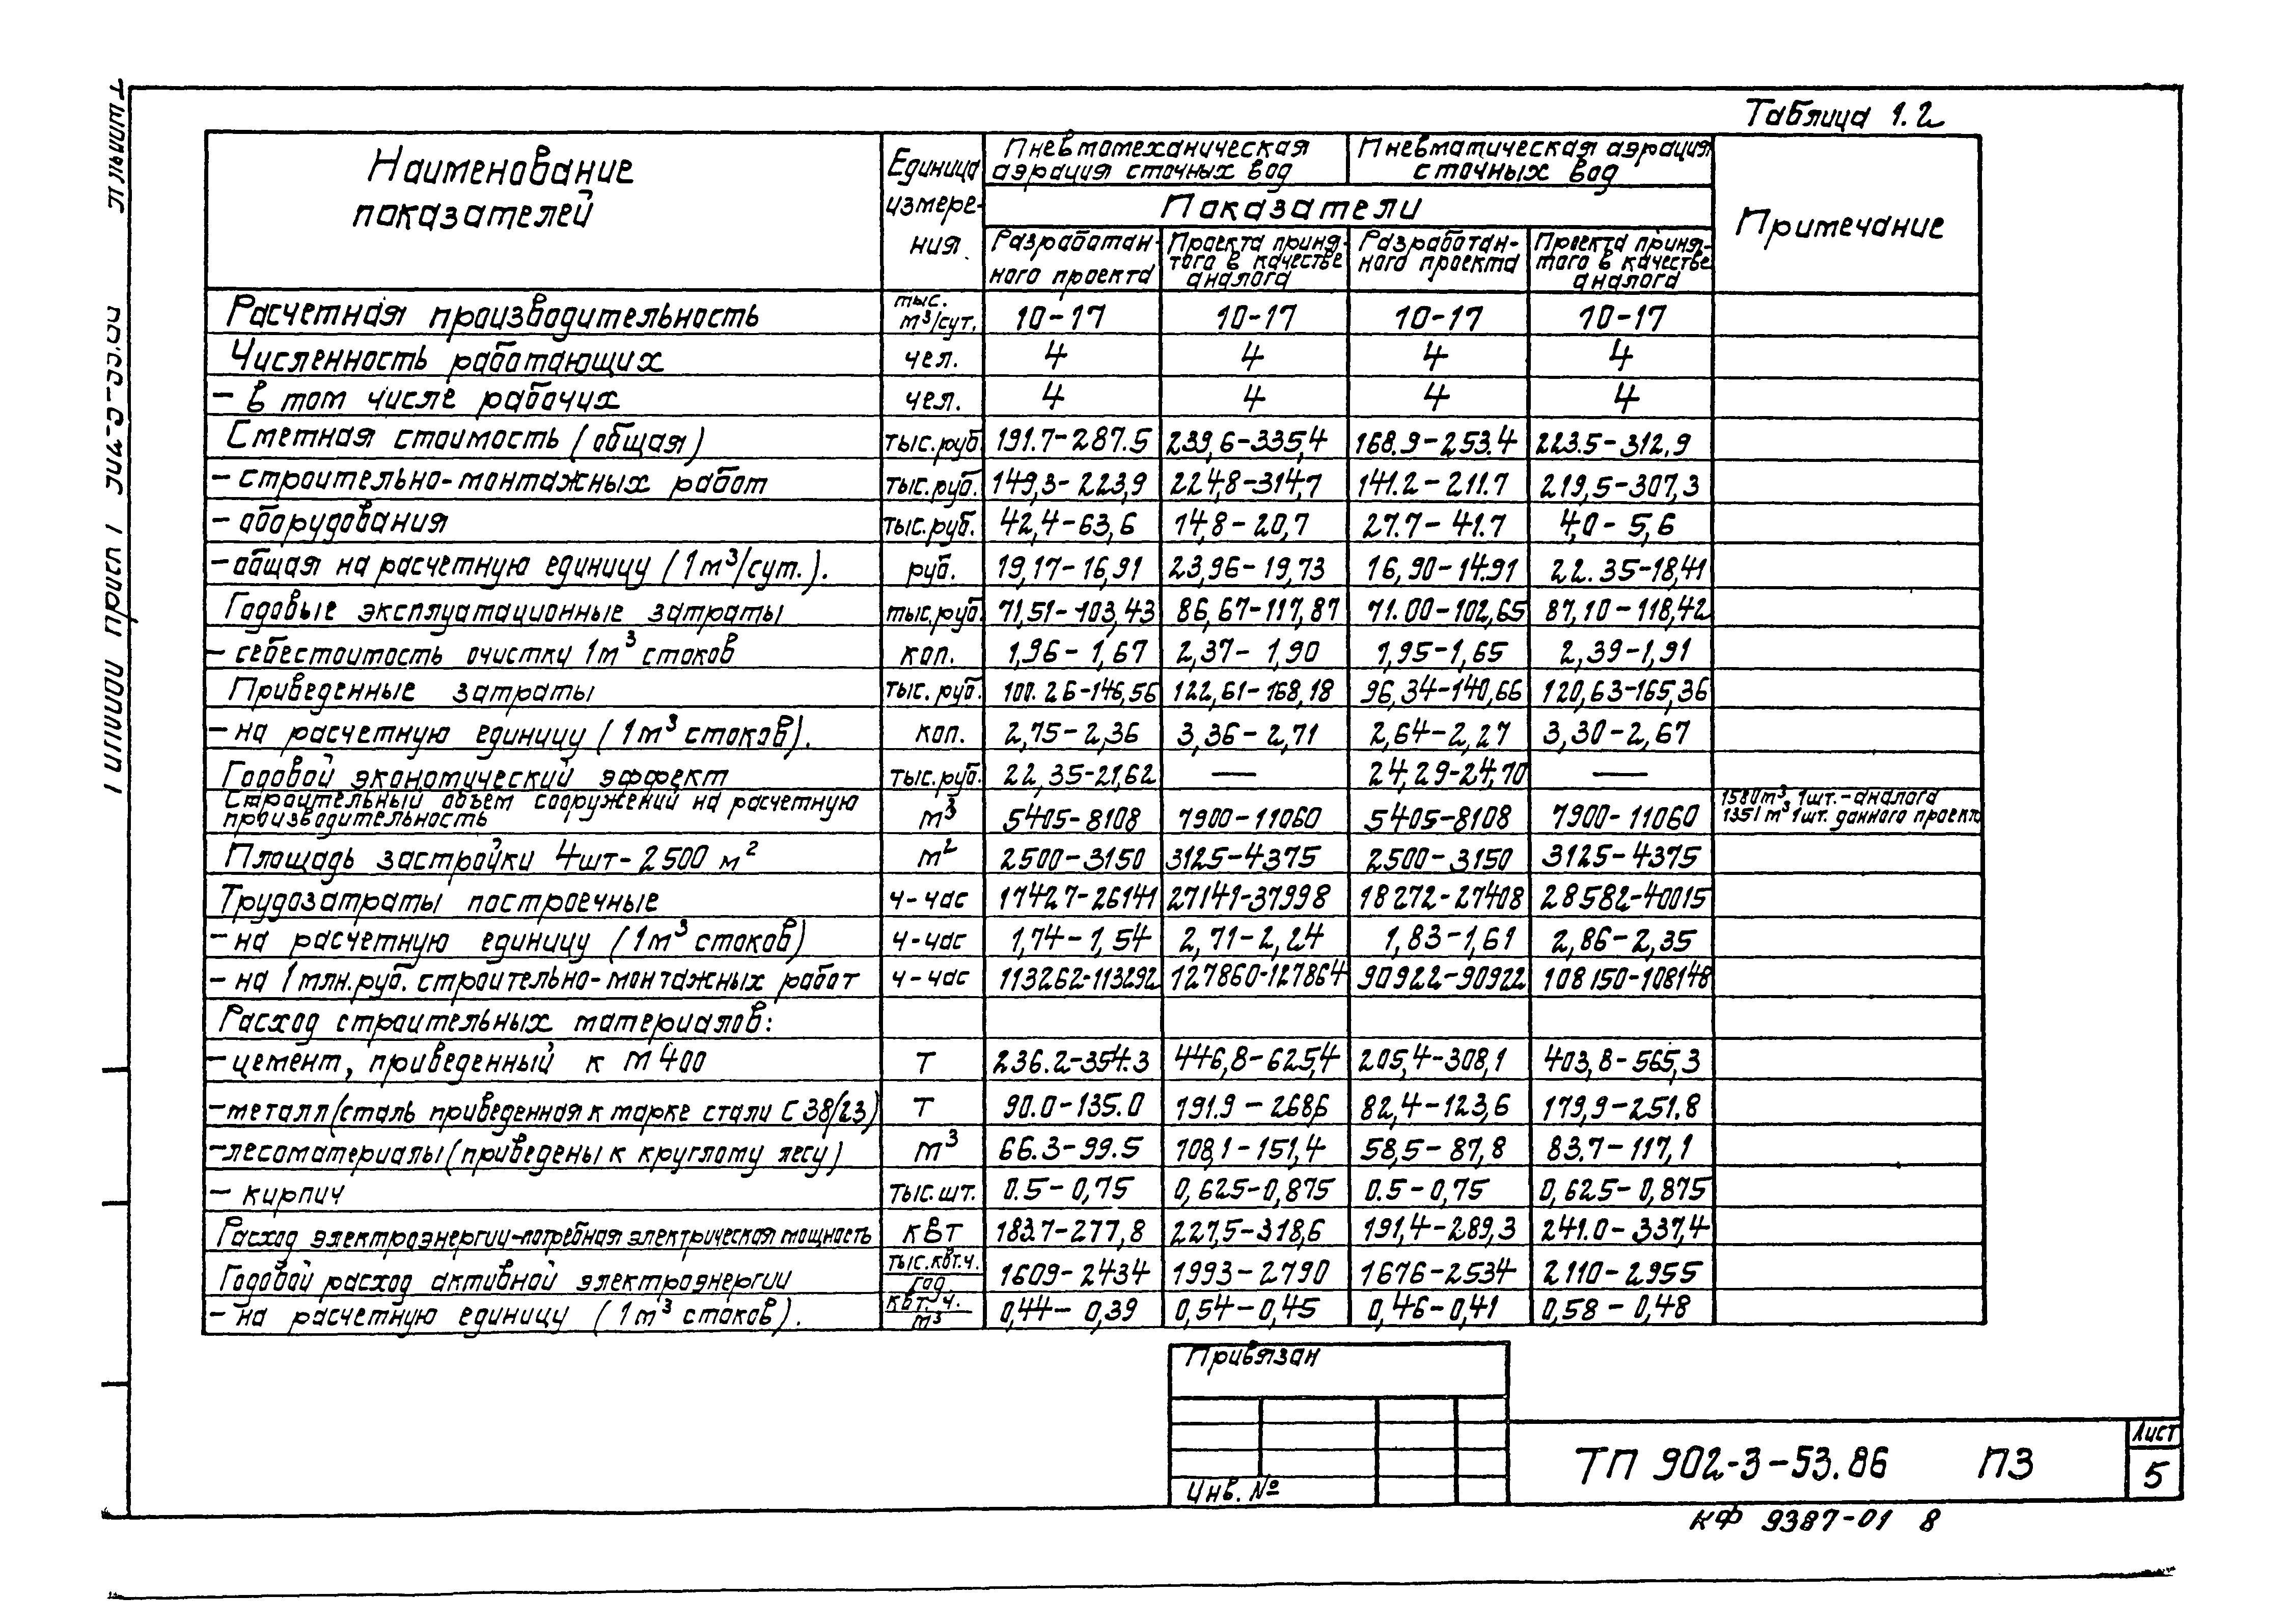 Таблица 1.2
Наименование показателей | Единица измерения | Пневтомеханическая аэрация сточных вод | Пневматическая аэрация сточных вод | Примечание
Показатели
Разработанного проекта | Проекта принятого в качестве аналога | Разработанного проекта | Проекта принятого в качестве аналога
Расчетная производительность | тыс. м³/сут. | 10-17 | 10-17 | 10-17 | 10-17
Численность работающих | чел. | 4 | 4 | 4 | 4
- в том числе рабочих | чел. | 4 | 4 | 4 | 4
Сметная стоимость (общая) | тыс.руб | 191.7-287.5 | 239,6-335,4 | 168.9-253.4 | 223.5-312,9
- строительно-монтажных работ | тыс.руб. | 149,3-223,9 | 224,8-314,7 | 141.2-211.7 | 219,5-307,3
- оборудования | тыс.руб. | 42,4-63,6 | 14,8-20,7 | 27.7-41.7 | 4,0-5,6
- общая на расчетную единицу (1м³/сут.). | руб. | 19,17-16,91 | 23,96-19,73 | 16,90-14.91 | 22.35-18,41
Годовые эксплуатационные затраты | тыс.руб. | 71,51-103,43 | 86,67-117,87 | 71.00-102,65 | 87,10-118,42
- себестоимость очистку 1м³ стоков | коп. | 1,96-1,67 | 2,37-1,90 | 1,95-1,65 | 2,39-1,91
Приведенные затраты | тыс.руб. | 100.26-146,56 | 122,61-168,18 | 96,34-140,66 | 120,63-165,36
- на расчетную единицу (1м³ стоков). | коп. | 2,75-2,36 | 3,36-2,71 | 2,64-2,27 | 3,30-2,67
Годовой экономический эффект | тыс.руб. | 22,35-21,62 | — | 24,29-24,70 | —
Строительный объем сооружений на расчетную производительность | м³ | 5405-8108 | 7900-11060 | 5405-8108 | 7900-11060 | 1580м³ 1шт.-аналога 1351 м³ 1шт. данного проекта
Площадь застройки 4шт-2500 м² | м² | 2500-3150 | 3125-4375 | 2500-3150 | 3125-4375
Трудозатраты построечные | ч-час | 17427-26141 | 27141-37998 | 18272-27408 | 28582-40015
- на расчетную единицу (1м³ стоков) | ч-час | 1,74-1,54 | 2,71-2,24 | 1,83-1,61 | 2,86-2,35
- на 1 млн.руб. строительно-монтажных работ | ч-час | 113262-113292 | 127860-127864 | 90922-90922 | 108150-108148
Расход строительных материалов:
- цемент, приведенный к М400 | Т | 236.2-354.3 | 446,8-625,4 | 205,4-308,1 | 403,8-565,3
- металл (сталь приведенная к марке стали С38/23) | Т | 90.0-135.0 | 191.9-268,6 | 82,4-123,6 | 179,9-251.8
- лесоматериалы (приведены к круглому лесу) | м³ | 66.3-99.5 | 108,1-151,4 | 58,5-87,8 | 83.7-117,1
- кирпич | тыс.шт. | 0.5-0,75 | 0,625-0,875 | 0.5-0,75 | 0,625-0,875
Расход электроэнергии-потребная электрическая мощность | кВт | 183.7-277,8 | 227,5-318,6 | 191,4-289,3 | 241.0-337,4
Годовой расход активной электроэнергии | тыс.квт.ч. год | 1609-2434 | 1993-2790 | 1676-2534 | 2110-2955
- на расчетную единицу (1м³ стоков). | квт.ч. м³ | 0,44-0,39 | 0,54-0,45 | 0,46-0,41 | 0,58-0,48
Привязан
Инв. №
ТП 902-3-53.86 ПЗ
Лист
5
КФ 9387-01 8